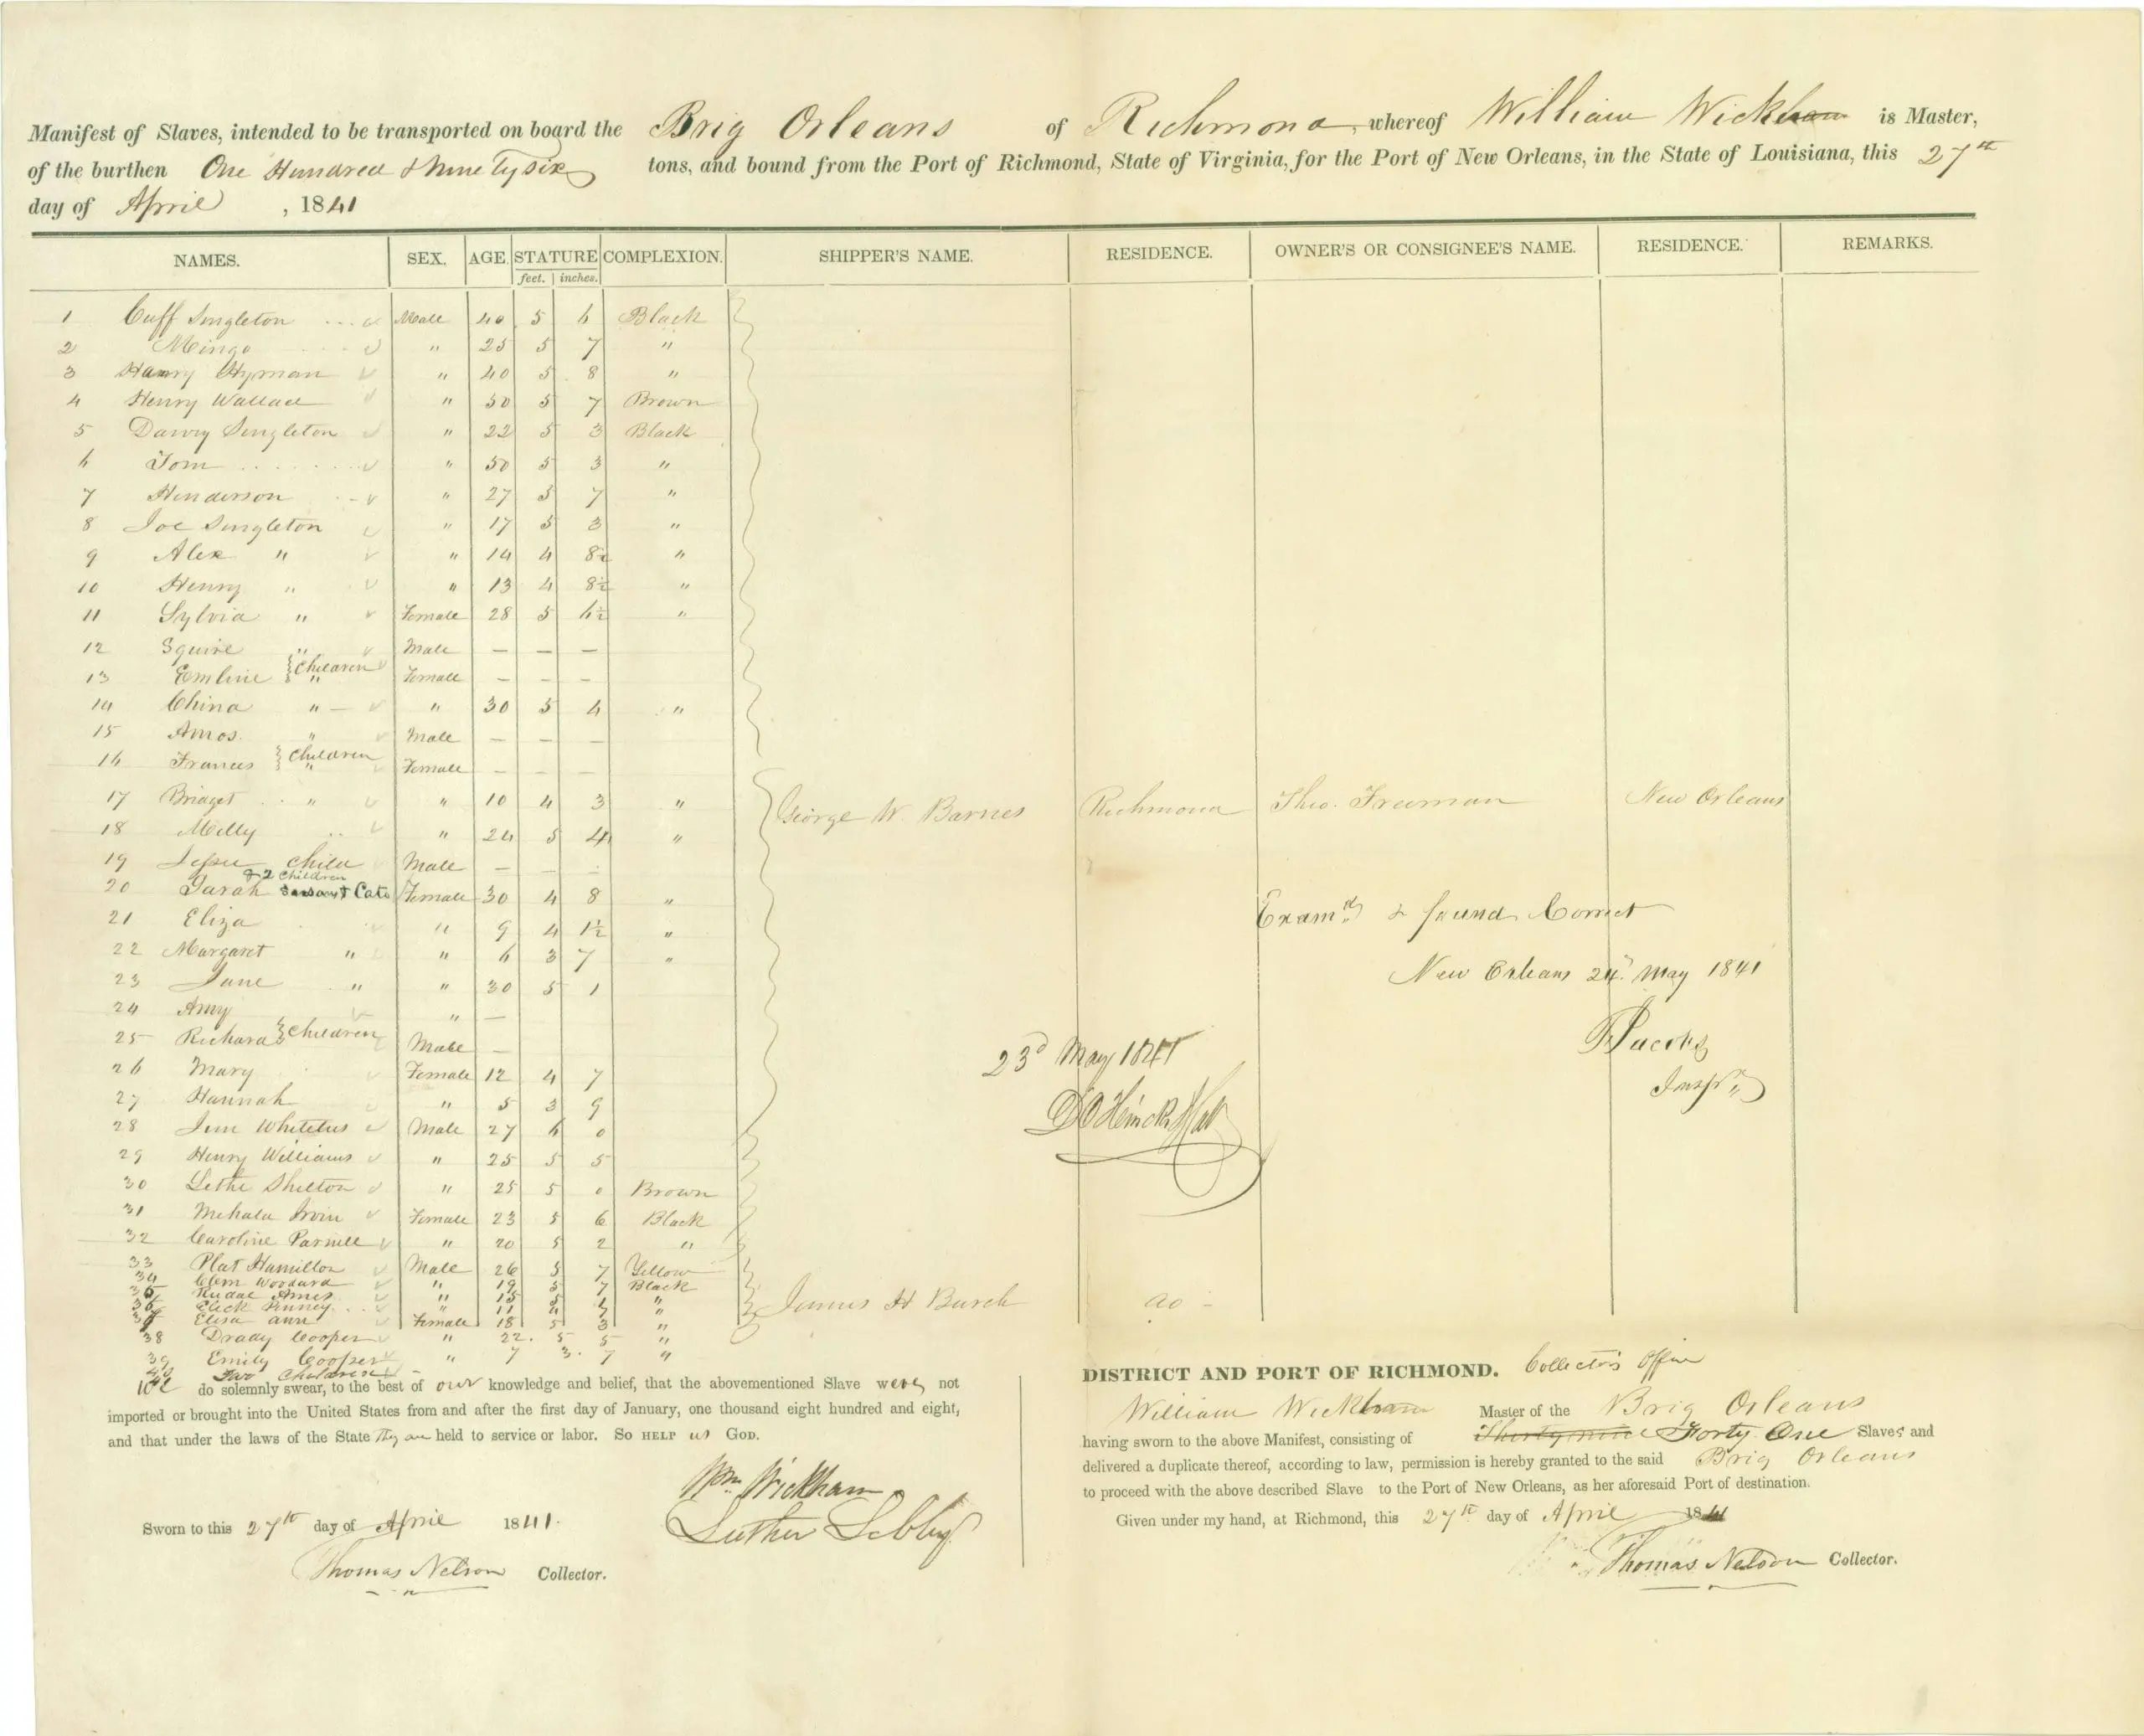 Manifest of Slaves, intended to be transported on board the Brig Orleans of Richmond, whereof William Wickham is Master,
of the burthen One Hundred & Ninety six tons, and bound from the Port of Richmond, State of Virginia, for the Port of New Orleans, in the State of Louisiana, this 27th
day of April , 1841
NAMES. SEX. AGE. STATURE COMPLEXION. SHIPPER'S NAME. RESIDENCE. OWNER'S OR CONSIGNEE'S NAME. RESIDENCE. REMARKS.
feet. inches.
1 Cuff Singleton Male 40 5 6 Black
2 Mingo " 25 5 7 "
3 Henry Hyman " 40 5 8 "
4 Henry Wallace " 50 5 7 Brown
5 Singleton " 22 5 3 Black
6 Tom " 50 5 3 "
7 Henderson " 27 5 7 "
8 Joe Singleton " 17 5 3 "
9 Alex " " 14 4 8½ "
10 Henry " " 13 4 8½ "
11 Sylvia " Female 28 5 6½ "
12 Squire " Male — — —
13 Emline " Children Female — — —
14 China " — " 30 5 4 "
15 Amos " Male — — —
16 Frances " Children Female — — —
17 Bridget " " 10 4 3 " George W. Barnes Richmond Theo. Freeman New Orleans
18 Milly " 24 5 4 "
19 Jesse Child Male — — —
& 2 Children
20 Sarah & Cato Female 30 4 8 "
21 Eliza " 9 4 1½ "
22 Margaret " " 6 3 7 "
23 Jane " " 30 5 1
24 Amy " —
25 Richard Children Male —
26 Mary Female 12 4 7
27 Hannah " 5 3 9
28 Jim Male 27 6 0
29 Henry Williams " 25 5 5
30 Shelton " 25 5 0 Brown
31 Irvin Female 23 5 6 Black
32 Caroline " 20 5 2 "
33 Plat Hamilton Male 26 5 7 Yellow
34 Clem Woodard " 19 5 7 Black
35 Ames " 15 5 "
36 Elick " 11 4 "
37 Eliza ann Female 18 5 3 " Junius H Burch do -
38 Drady Cooper " 22. 5 5 "
39 Emily Cooper " 7 3. 7 "
Two Children
Exam'd & found Correct
New Orleans 24th May 1841
Jacobs
Insp'r
23d May 1841
We do solemnly swear, to the best of our knowledge and belief, that the abovementioned Slave were not
imported or brought into the United States from and after the first day of January, one thousand eight hundred and eight,
and that under the laws of the State They are held to service or labor. SO HELP us GOD.
Wm Wickham
Luther Libby
Sworn to this 27th day of April 1841.
Thomas Nelson Collector.
DISTRICT AND PORT OF RICHMOND. Collector's Office
William Wickham Master of the Brig Orleans
having sworn to the above Manifest, consisting of Thirty nine Forty One Slaves and
delivered a duplicate thereof, according to law, permission is hereby granted to the said Brig Orleans
to proceed with the above described Slave to the Port of New Orleans, as her aforesaid Port of destination.
Given under my hand, at Richmond, this 27th day of April 1841
Thomas Nelson Collector.